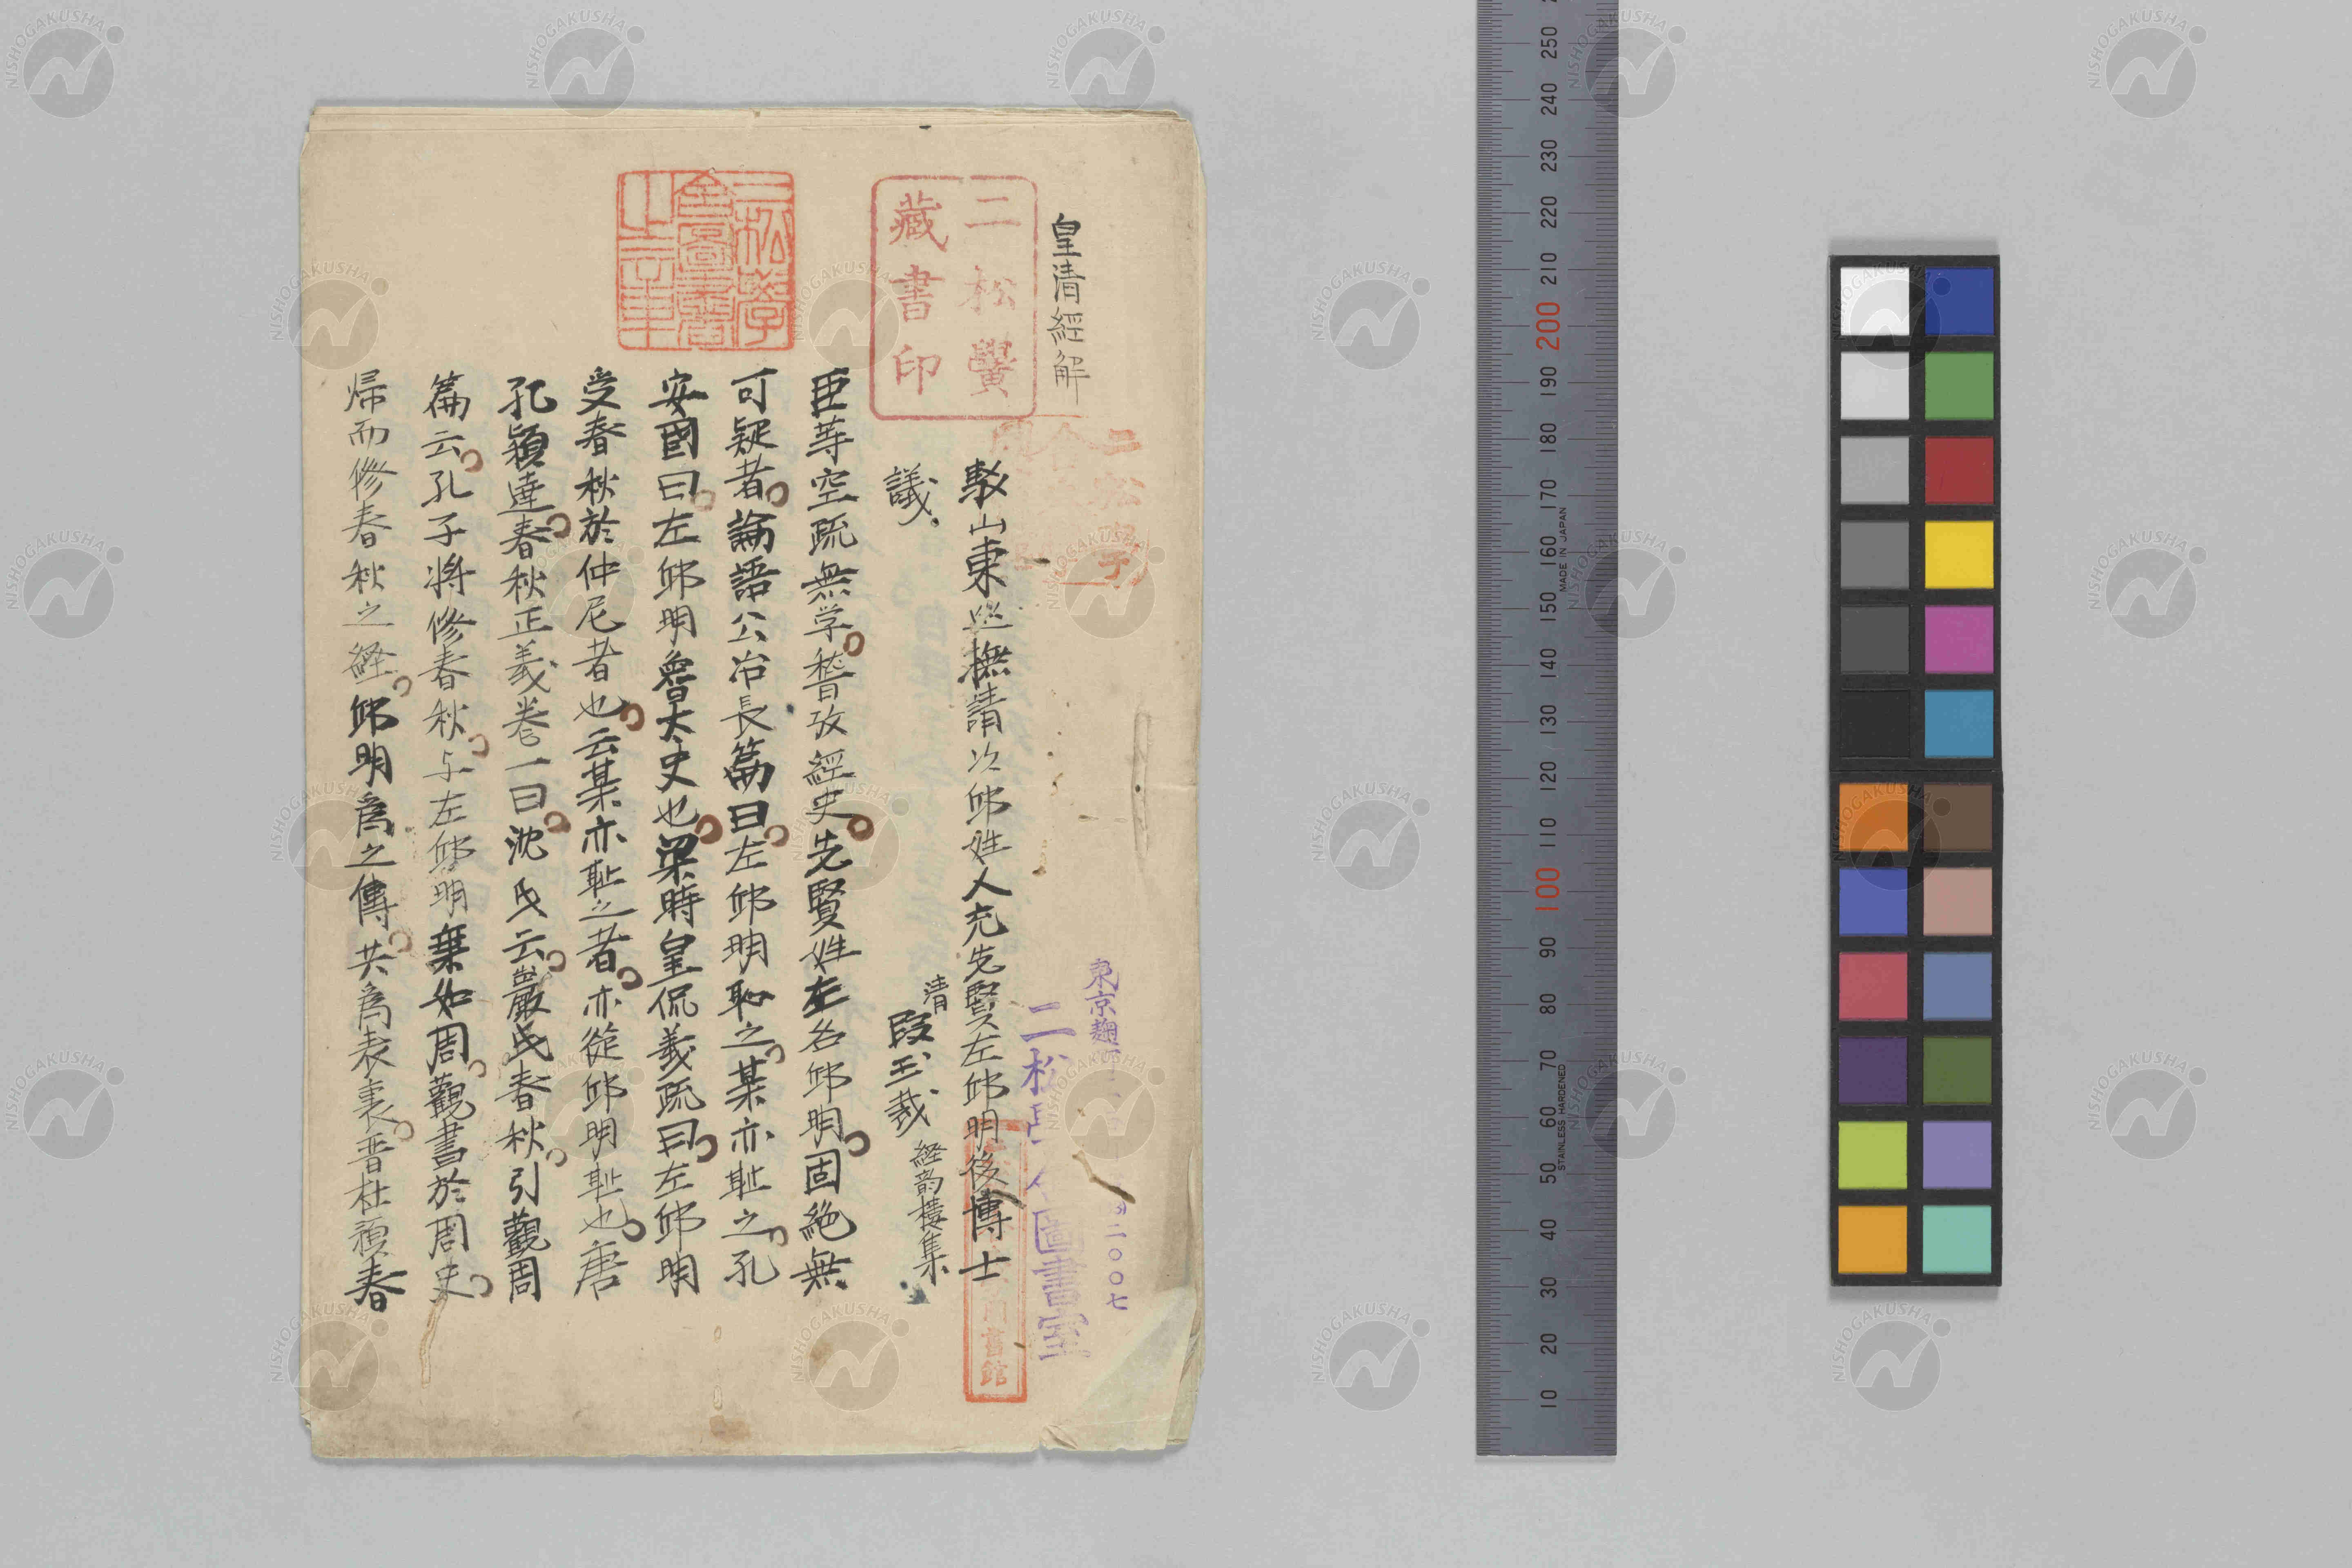 皇清經解
駁山東巡撫請次邱姓人充先賢左邱明後博士
議
清 段玉裁 経韵樓集
臣等空疏無学稽攷經史先賢姓左名邱明固絶無
可疑者論語公冶長篇曰左邱明恥之某亦恥之孔
安國曰左邱明魯太史也梁時皇侃義疏曰左邱明
受春秋於仲尼者也云某亦恥之者亦從邱明恥也唐
孔穎達春秋正義巻一曰沈氏云嚴氏春秋引觀周
篇云孔子将修春秋与左邱明乗如周觀書於周史
帰而修春秋之経邱明為之傳共為表裏晋杜預春
二松黌
藏書印
二松學
舍圖書
之章
二松学
東京麹
二松
圖書室
二〇〇七
書館
NISHOGAKUSHA
250 240 230 220 210 200 190 180 170 160 150 140 130 120 110 100 90 80 70 60 50 40 30 20 10
MADE IN JAPAN
STAINLESS HARDENED